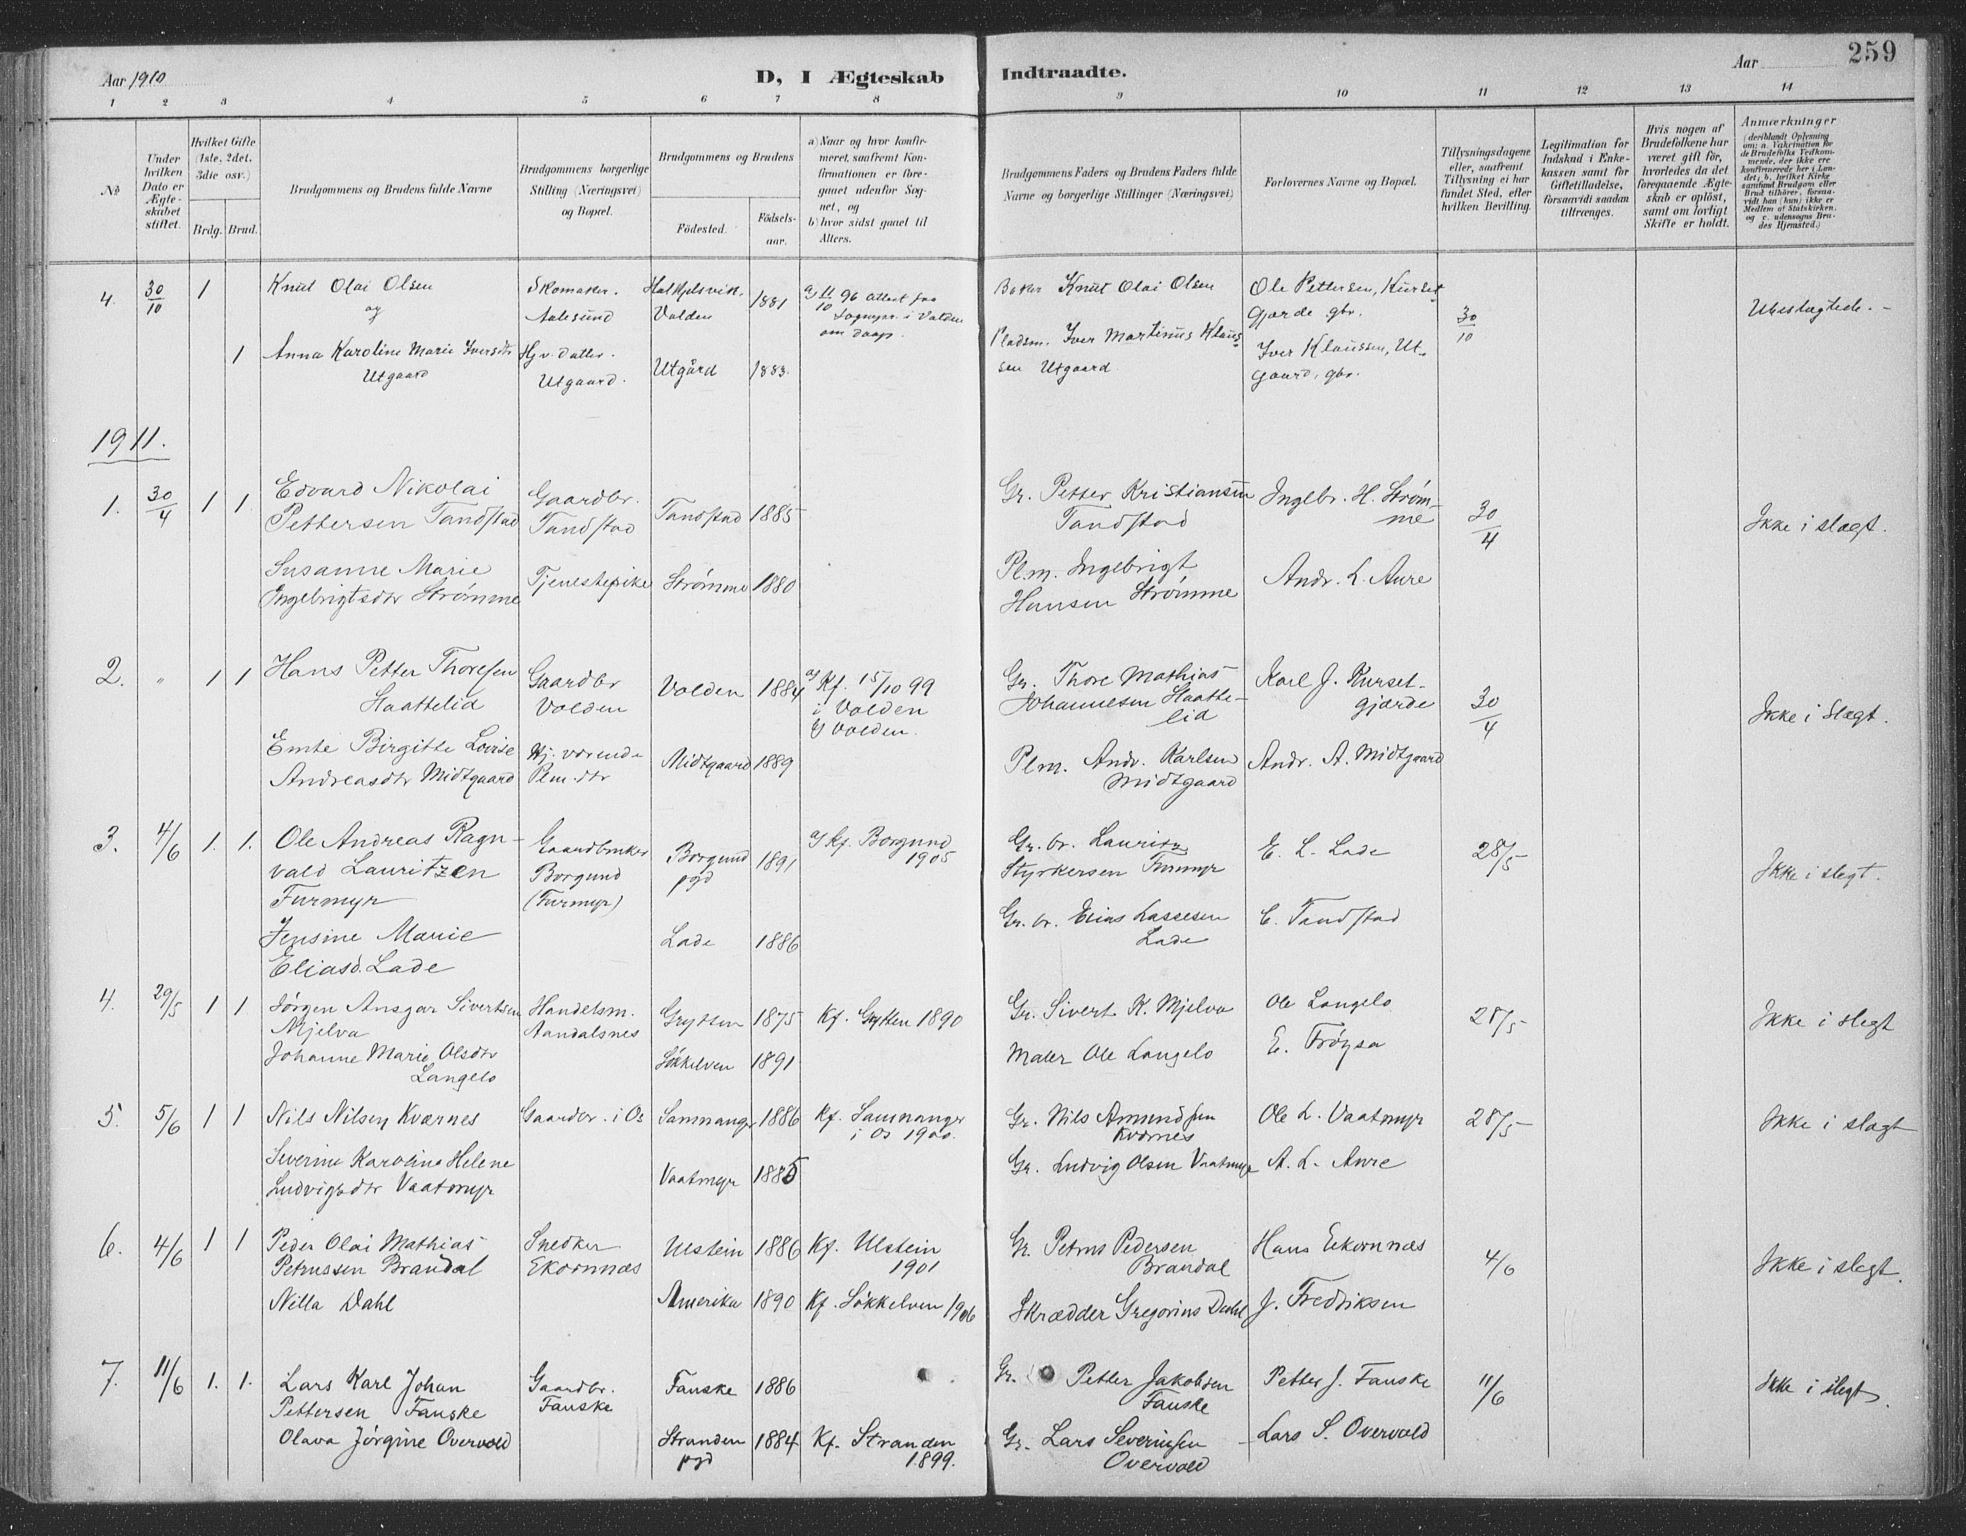 Aar 1910
D, I Ægteskab
Indtraadte.
Aar
259
1 2 3 4 5 6 7 8 9 10 11 12 13 14
No
Under hvilken Dato er Ægteskabet stiftet.
Hvilket Gifte (1ste, 2det, 3die osv.)
Brdg. Brud.
Brudgommens og Brudens fulde Navne
Brudgommens borgerlige Stilling (Næringsvei) og Bopæl.
Brudgommens og Brudens
Fødested.
Fødselsaar.
a) Naar og hvor konfirmeret, saafremt Konfirmationen er foregaaet udenfor Sognet, og
b) hvor sidst gaaet til Alters.
Brudgommens Faders og Brudens Faders fulde Navne og borgerlige Stillinger (Næringsvei)
Forlovernes Navne og Bopæl.
Tillysningsdagene eller, saafremt Tillysning ei har fundet Sted, efter hvilken Bevilling.
Legitimation for Indskud i Enkekassen samt for Giftetilladelse, forsaavidt saadan tiltrænges.
Hvis nogen af Brudefolkene har været gift før, hvorledes da det foregaaende Ægteskab er opløst, samt om lovligt Skifte er holdt.
Anmærkninger
(deriblandt Oplysning om: a. Vakcination for de Brudefolks Vedkommende, der ikke ere konfirmerede her i Landet, b. hvilket Kirkesamfund Brudgom eller Brud tilhører, forsaavidt han (hun) ikke er Medlem af Statskirken, og c. udensogns Brudes Hjemsted.)
4. 30/10 1 Knut Olai Olsen Skomaker. Halkjelsvik. 1881 a) 11/10 96 attest fra Baker Knut Olai Olsen Ole Pettersen, Kurset-
og Aalesund Volden Sognepr. i Volden gjærde gbr. 30/10 Ubeslægtede.-
om daap.
1 Anna Karoline Marie Iversdtr Hjv. datter Utgård 1883. Pladsm. Iver Martinus Klaus- Iver Klaussen, Ut-
Utgaard Utgaard. sen Utgaard. gaard, gbr.
1911.
1. 30/4 1 1 Edvard Nikolai Gaardbr. Tandstad 1885 Gr. Petter Kristiansen Ingebr. H. Strøm-
Pettersen Tandstad Tandstad Tandstad me 30/4 Ikke i slægt.
Susanne Marie Tjenestepike Strømme 1880 Plm. Ingebrigt Andr. L. Aure
Ingebrigtsdtr Strømme Hansen Strømme
2. " 1 1 Hans Petter Thoresen Gaardbr Volden 1884 a) Kf. 15/10 99 Gr. Thore Mathias Karl J. Kurset-
Haattelid Volden i Volden Johannesen Haatte- gjærde 30/4 Ikke i slægt.
b) Volden. lid
Emte Birgitte Lovise Hj. værende Midtgaard 1889 Plm. Andr. Karlsen Andr. A. Midtgaard
Andreasdtr Midtgaard Plm. dtr Midtgaard
3. 4/6 1. 1. Ole Andreas Ragn- Gaardbruker Borgund 1891 a) Kf. Borgund Gr. br. Lauritz E. L. Lade 28/5 Ikke i slegt.
vald Lauritzen Borgund pgd 1905 Styrkersen Furmyr
Furmyr (Furmyr)
Jensine Marie Lade 1886 Gr. br. Elias Lassesen C. Tandstad
Eliasd. Lade Lade
4. 29/5 1 1 Jørgen Ansgar Sivertsen Handelsm. Grytten 1875 Kf. Grytten 1890 Gr. Sivert K. Mjelva Ole Langelo 28/5 Ikke i slegt
Mjelva Aandalsnes
Johanne Marie Olsdtr Søkkelven 1891 Maler Ole Langelo E. Frøysa
Langelo
5. 5/6 1 1 Nils Nilsen Kværnes Gaardbr. i Os Samnanger 1886 Kf. Samnanger Gr. Nils Amundsen Ole L. Vaatmyr 28/5 Ikke i slægt
i Os 1900. Kværnes
Severine Karoline Helene Vaatmyr 1885 Gr. Ludvig Olsen Vaatmyr A. L. Aure
Ludvigsdtr Vaatmyr
6. 4/6 1 1 Peder Olai Mathias Snedker Ulstein 1886 Kf. Ulstein Gr. Petrus Pedersen Hans Ekornnæs 4/6 Ikke i slegt.
Petrussen Brandal Ekornnæs 1901 Brandal
Nilla Dahl Amerika 1890 Kf. Søkkelven 1906 Skrædder Gregorius Dahl J. Fredriksen
7. 11/6 1. 1. Lars Karl Johan Gaardbr. Fauske 1886 Gr. Petter Jakobsen Petter J. Fauske 11/6 Ikke i slegt.
Pettersen Fauske Fauske Fauske
Olava Jørgine Overvold Stranden 1884 Kf. Stranden Gr. Lars Severinsen Lars S. Overvold
pgd 1899. Overvold